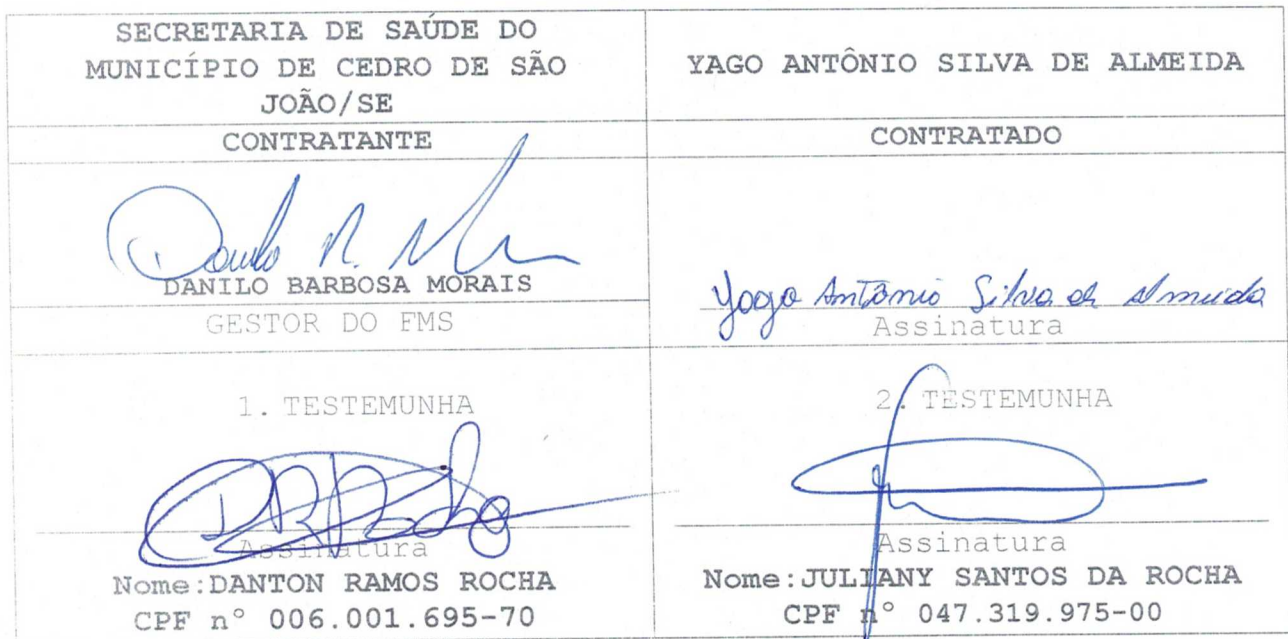 SECRETARIA DE SAÚDE DO
MUNICÍPIO DE CEDRO DE SÃO
JOÃO/SE
YAGO ANTÔNIO SILVA DE ALMEIDA
CONTRATANTE
CONTRATADO
DANILO BARBOSA MORAIS
GESTOR DO FMS
Yago Antônio Silva de Almeida
Assinatura
1. TESTEMUNHA
Assinatura
Nome:DANTON RAMOS ROCHA
CPF n° 006.001.695-70
2. TESTEMUNHA
Assinatura
Nome:JULIANY SANTOS DA ROCHA
CPF n° 047.319.975-00